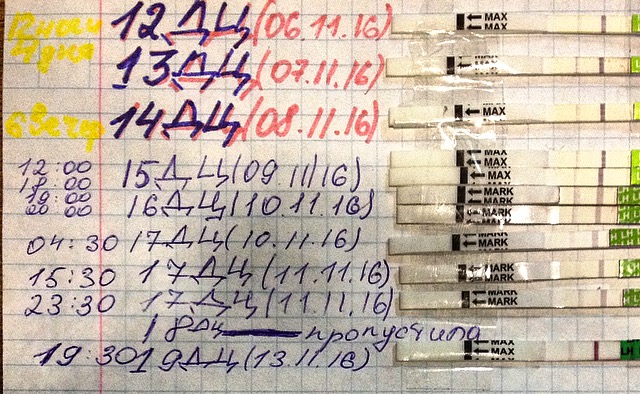 12 ДЦ (06.11.16) MAX
13 ДЦ (07.11.16) MAX
4 дня
14 ДЦ (08.11.16) MAX
MAX
12:00 15 ДЦ (09.11.16) MAX
18:00
19:00 MARK
20:00 16 ДЦ (10.11.16) MARK
04:30 17 ДЦ (10.11.16) MARK
15:30 17 ДЦ (11.11.16) MARK
23:30 17 ДЦ (11.11.16) MARK
18 ДЦ пропустила
19:30 19 ДЦ (13.11.16) MAX